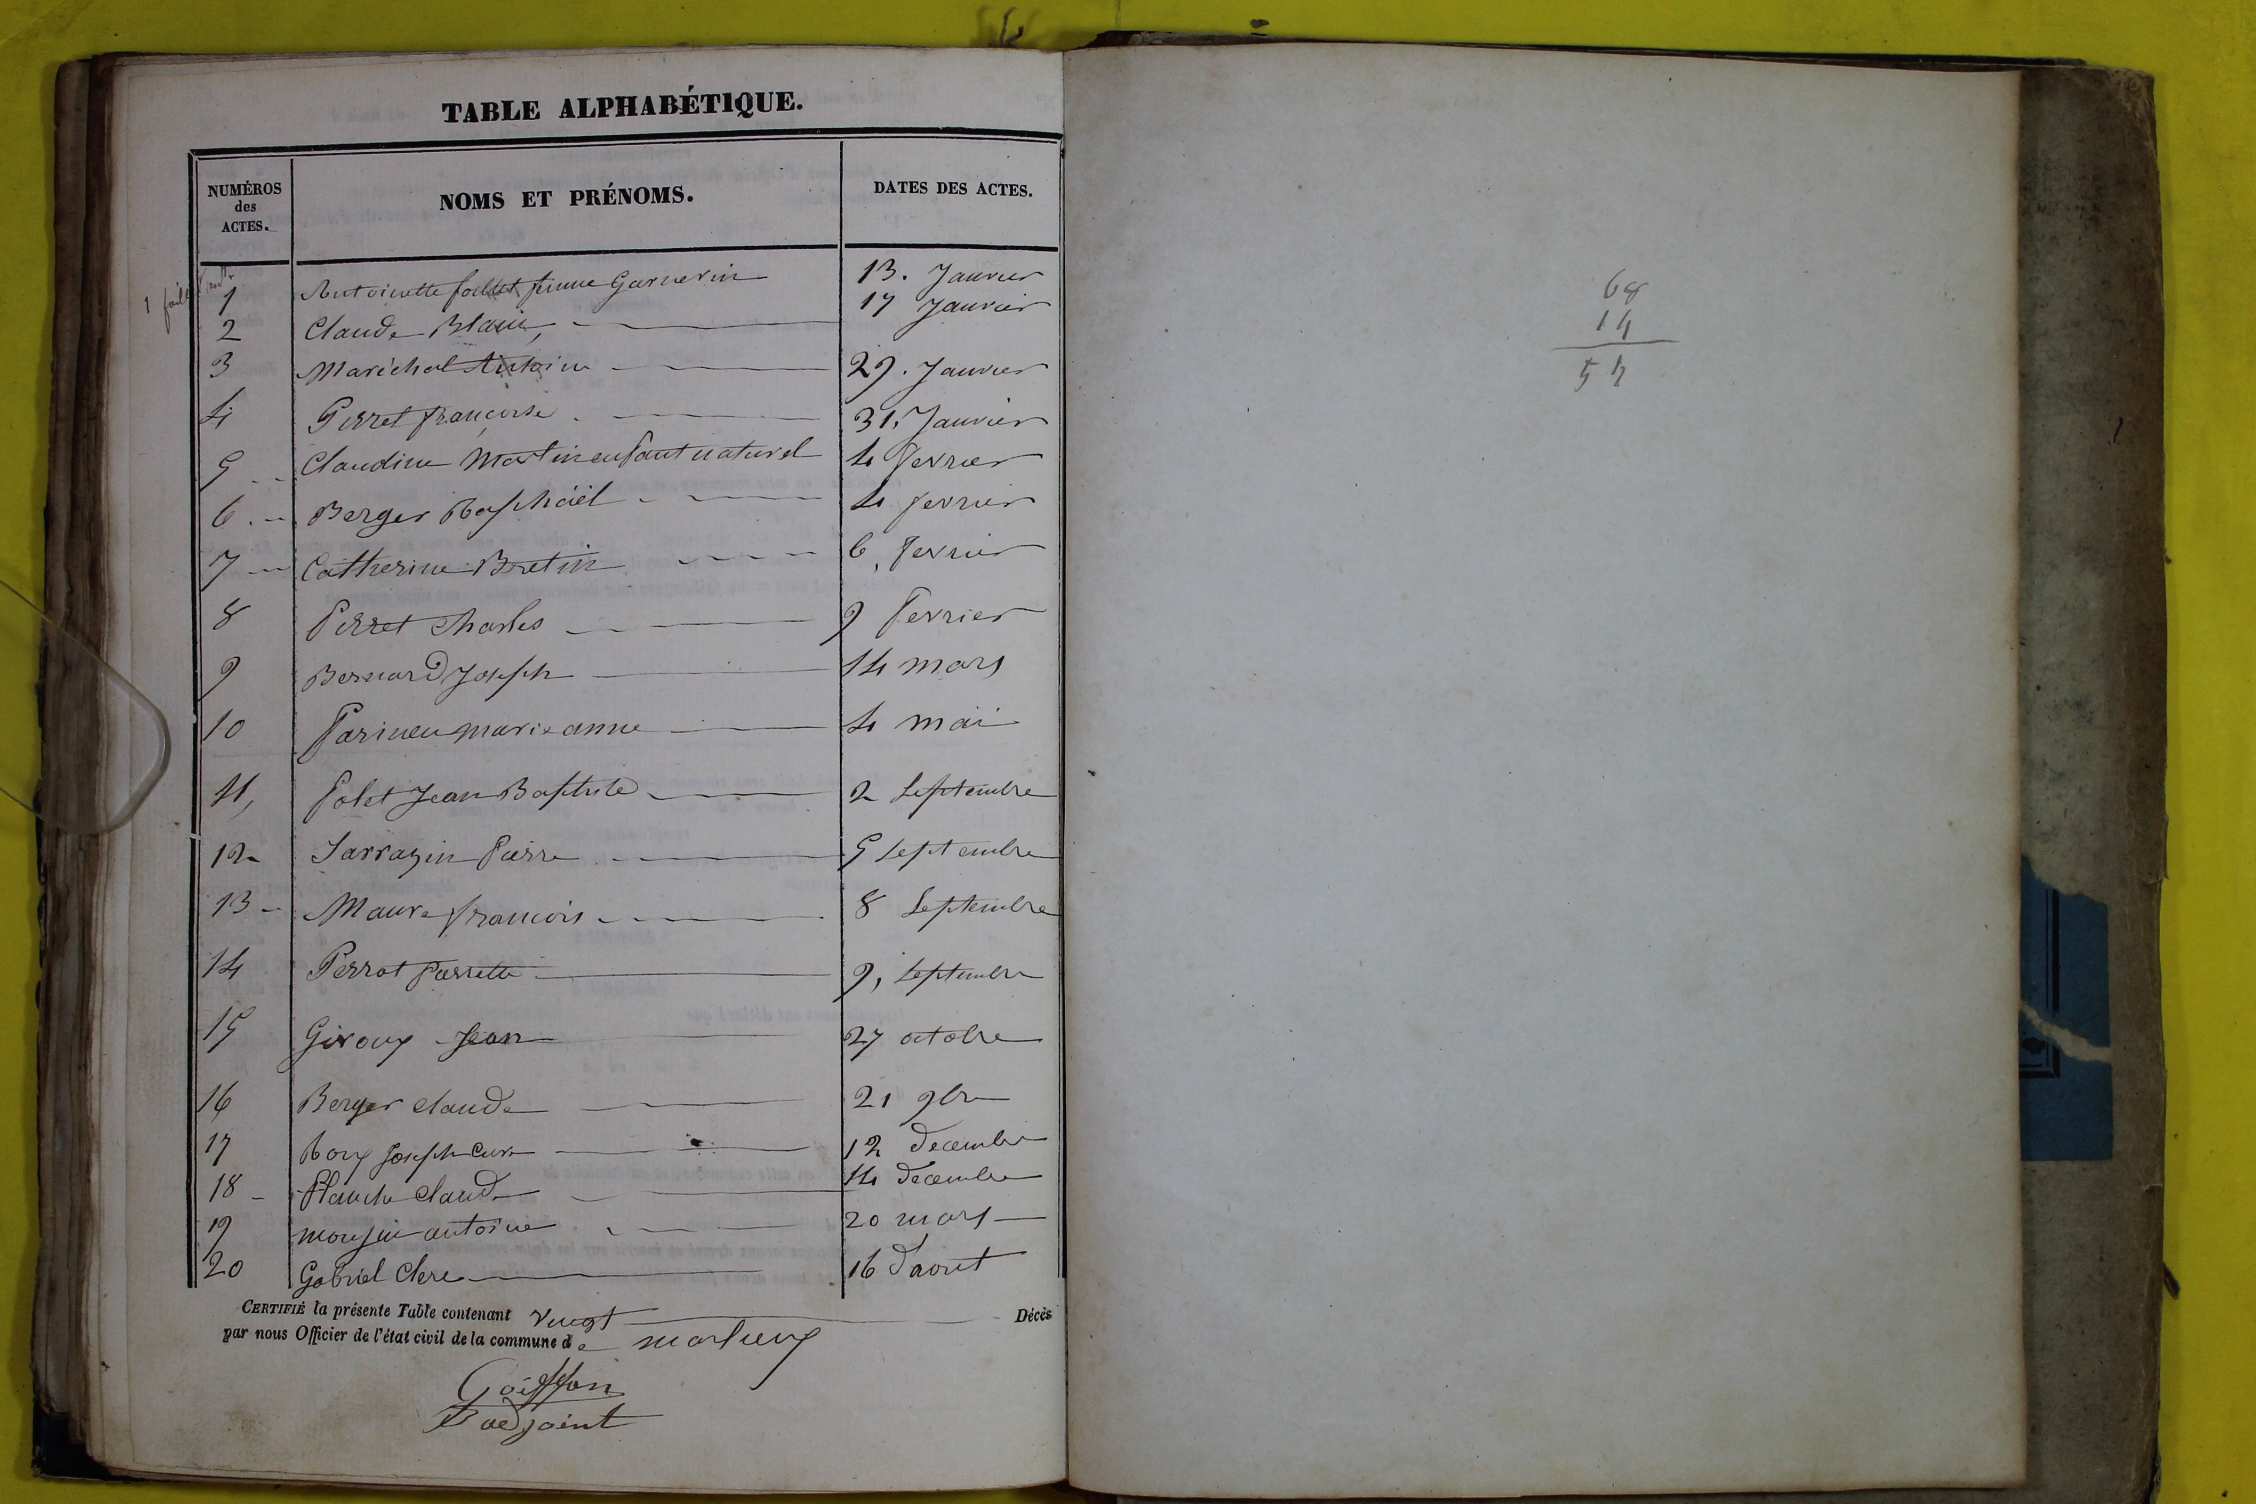 TABLE ALPHABÉTIQUE.
NUMÉROS
des
ACTES.
NOMS ET PRÉNOMS.
DATES DES ACTES.
1 Antoinette follet femme Garnerin 13. Janvier
2 Claude Blain, 17 Janvier
3 Maréchal Antoine 29. Janvier
4 Perret françoise 31, Janvier
5 Claudine Martin enfant naturel 4 fevrier
6 Berger Raphaël 4 fevrier
7 Catherine Bretin 6, fevrier
8 Perret Charles 9 Fevrier
9 Bernard Joseph 14 mars
10 marie anne 4 mai
11, Polet Jean Baptiste 2 Septembre
12 Sarrazin Pierre 5 Septembre
13 Maure francois 8 Septembre
14 Perrot Pierrette 9, Septembre
15 Giroux Jean 27 octobre
16 Berger Claude 21 9bre
17 Roux Joseph Curé 12 decembre
18 Planche Claude 14 decembre
19 antoine 20 mars
20 Gabriel Clere 16 d'aout
CERTIFIÉ la présente Table contenant vingt Décès
par nous Officier de l'état civil de la commune de
Goiffon
adjoint
68
14
54